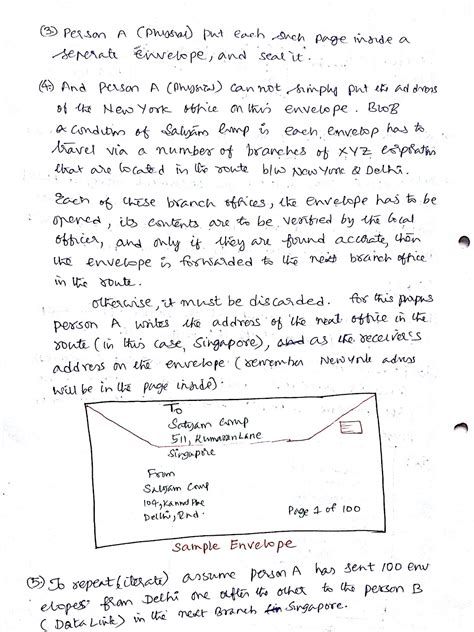 (3) Person A (physical) put each such page inside a
seperate envelope, and seal it.
(4) And Person A (physical) can not simply put the address
of the New York office on this envelope. BcoB
a condition of Satyam Comp is each envelop has to
travel via a number of branches of XYZ
that are located in the route b/w New York & Delhi.
Each of these branch offices, the envelope has to be
opened, its contents are to be verified by the local
officer, and only if they are found accurate, then
the envelope is forwarded to the next branch office
in the route.
otherwise, it must be discarded. For this
person A writes the address of the next office in the
route (in this case, Singapore), as the receiver's
address on the envelope (remember New York
will be in the page inside).
To
Satyam Comp
511, Kumaran Lane
Singapore
From
Satyam Comp
104,
Delhi,
Page 1 of 100
Sample Envelope
(5) To repeat (iterate) assume Person A has sent 100 env
elopes from Delhi one after the other to the person B
(Data Link) in the next Branch in Singapore.